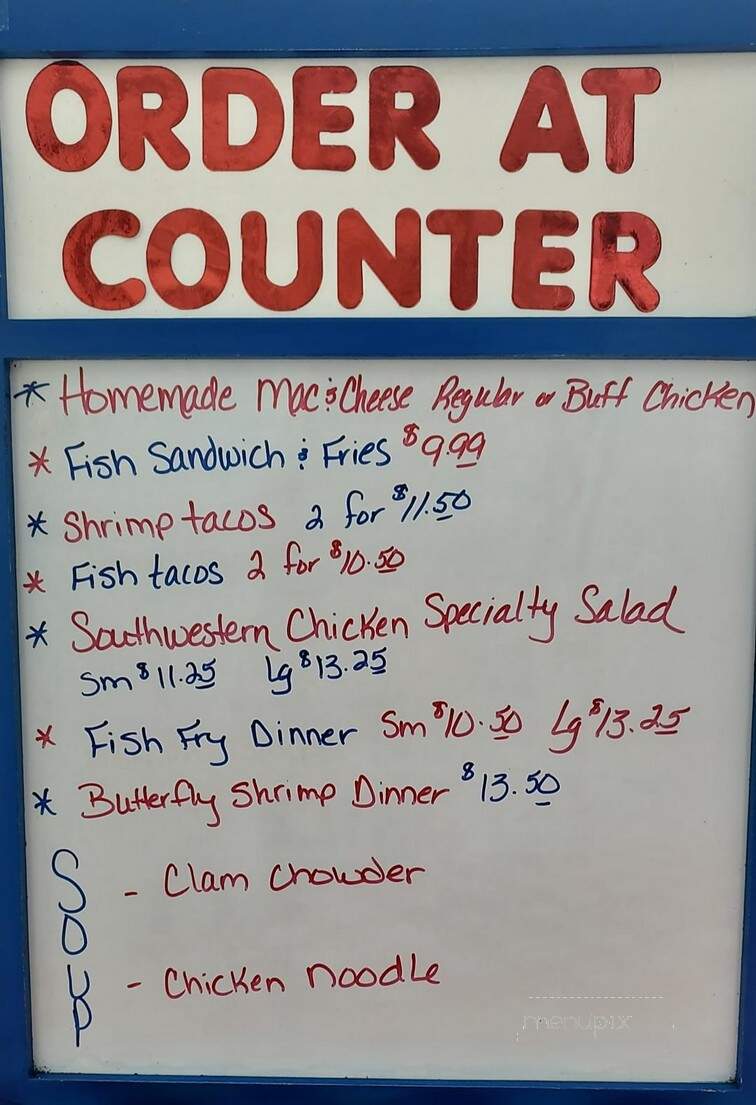 ORDER AT
COUNTER
* Homemade Mac & Cheese Regular or Buff Chicken
* Fish Sandwich & Fries $9.99
* Shrimp tacos 2 for $11.50
* Fish tacos 2 for $10.50
* Southwestern Chicken Specialty Salad
Sm $11.25 Lg $13.25
* Fish Fry Dinner Sm $10.50 Lg $13.25
* Butterfly Shrimp Dinner $13.50
SOUP
- Clam Chowder
- Chicken Noodle
menupix